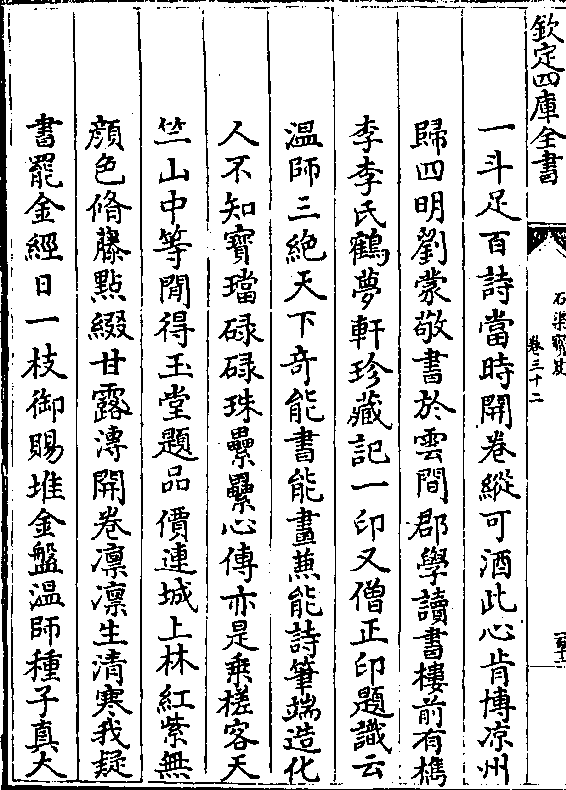 欽定四庫全書
石渠寶笈
卷三十二
一斗足百詩當時開卷縱可酒此心肯博凉州
歸四明劉蒙敬書於雲間郡學讀書樓前有檇
李李氏鶴夢軒珍藏記一印又僧正印題識云
溫師三絶天下奇能書能畫蕪能詩筆端造化
人不知寶璫碌碌珠纍纍心傳亦是乘槎客天
竺山中等閒得玉堂題品價連城上林紅紫無
顔色脩藤點綴甘露漙開卷凛凛生清寒我疑
書罷金經日一枝御賜堆金盤溫師種子真大